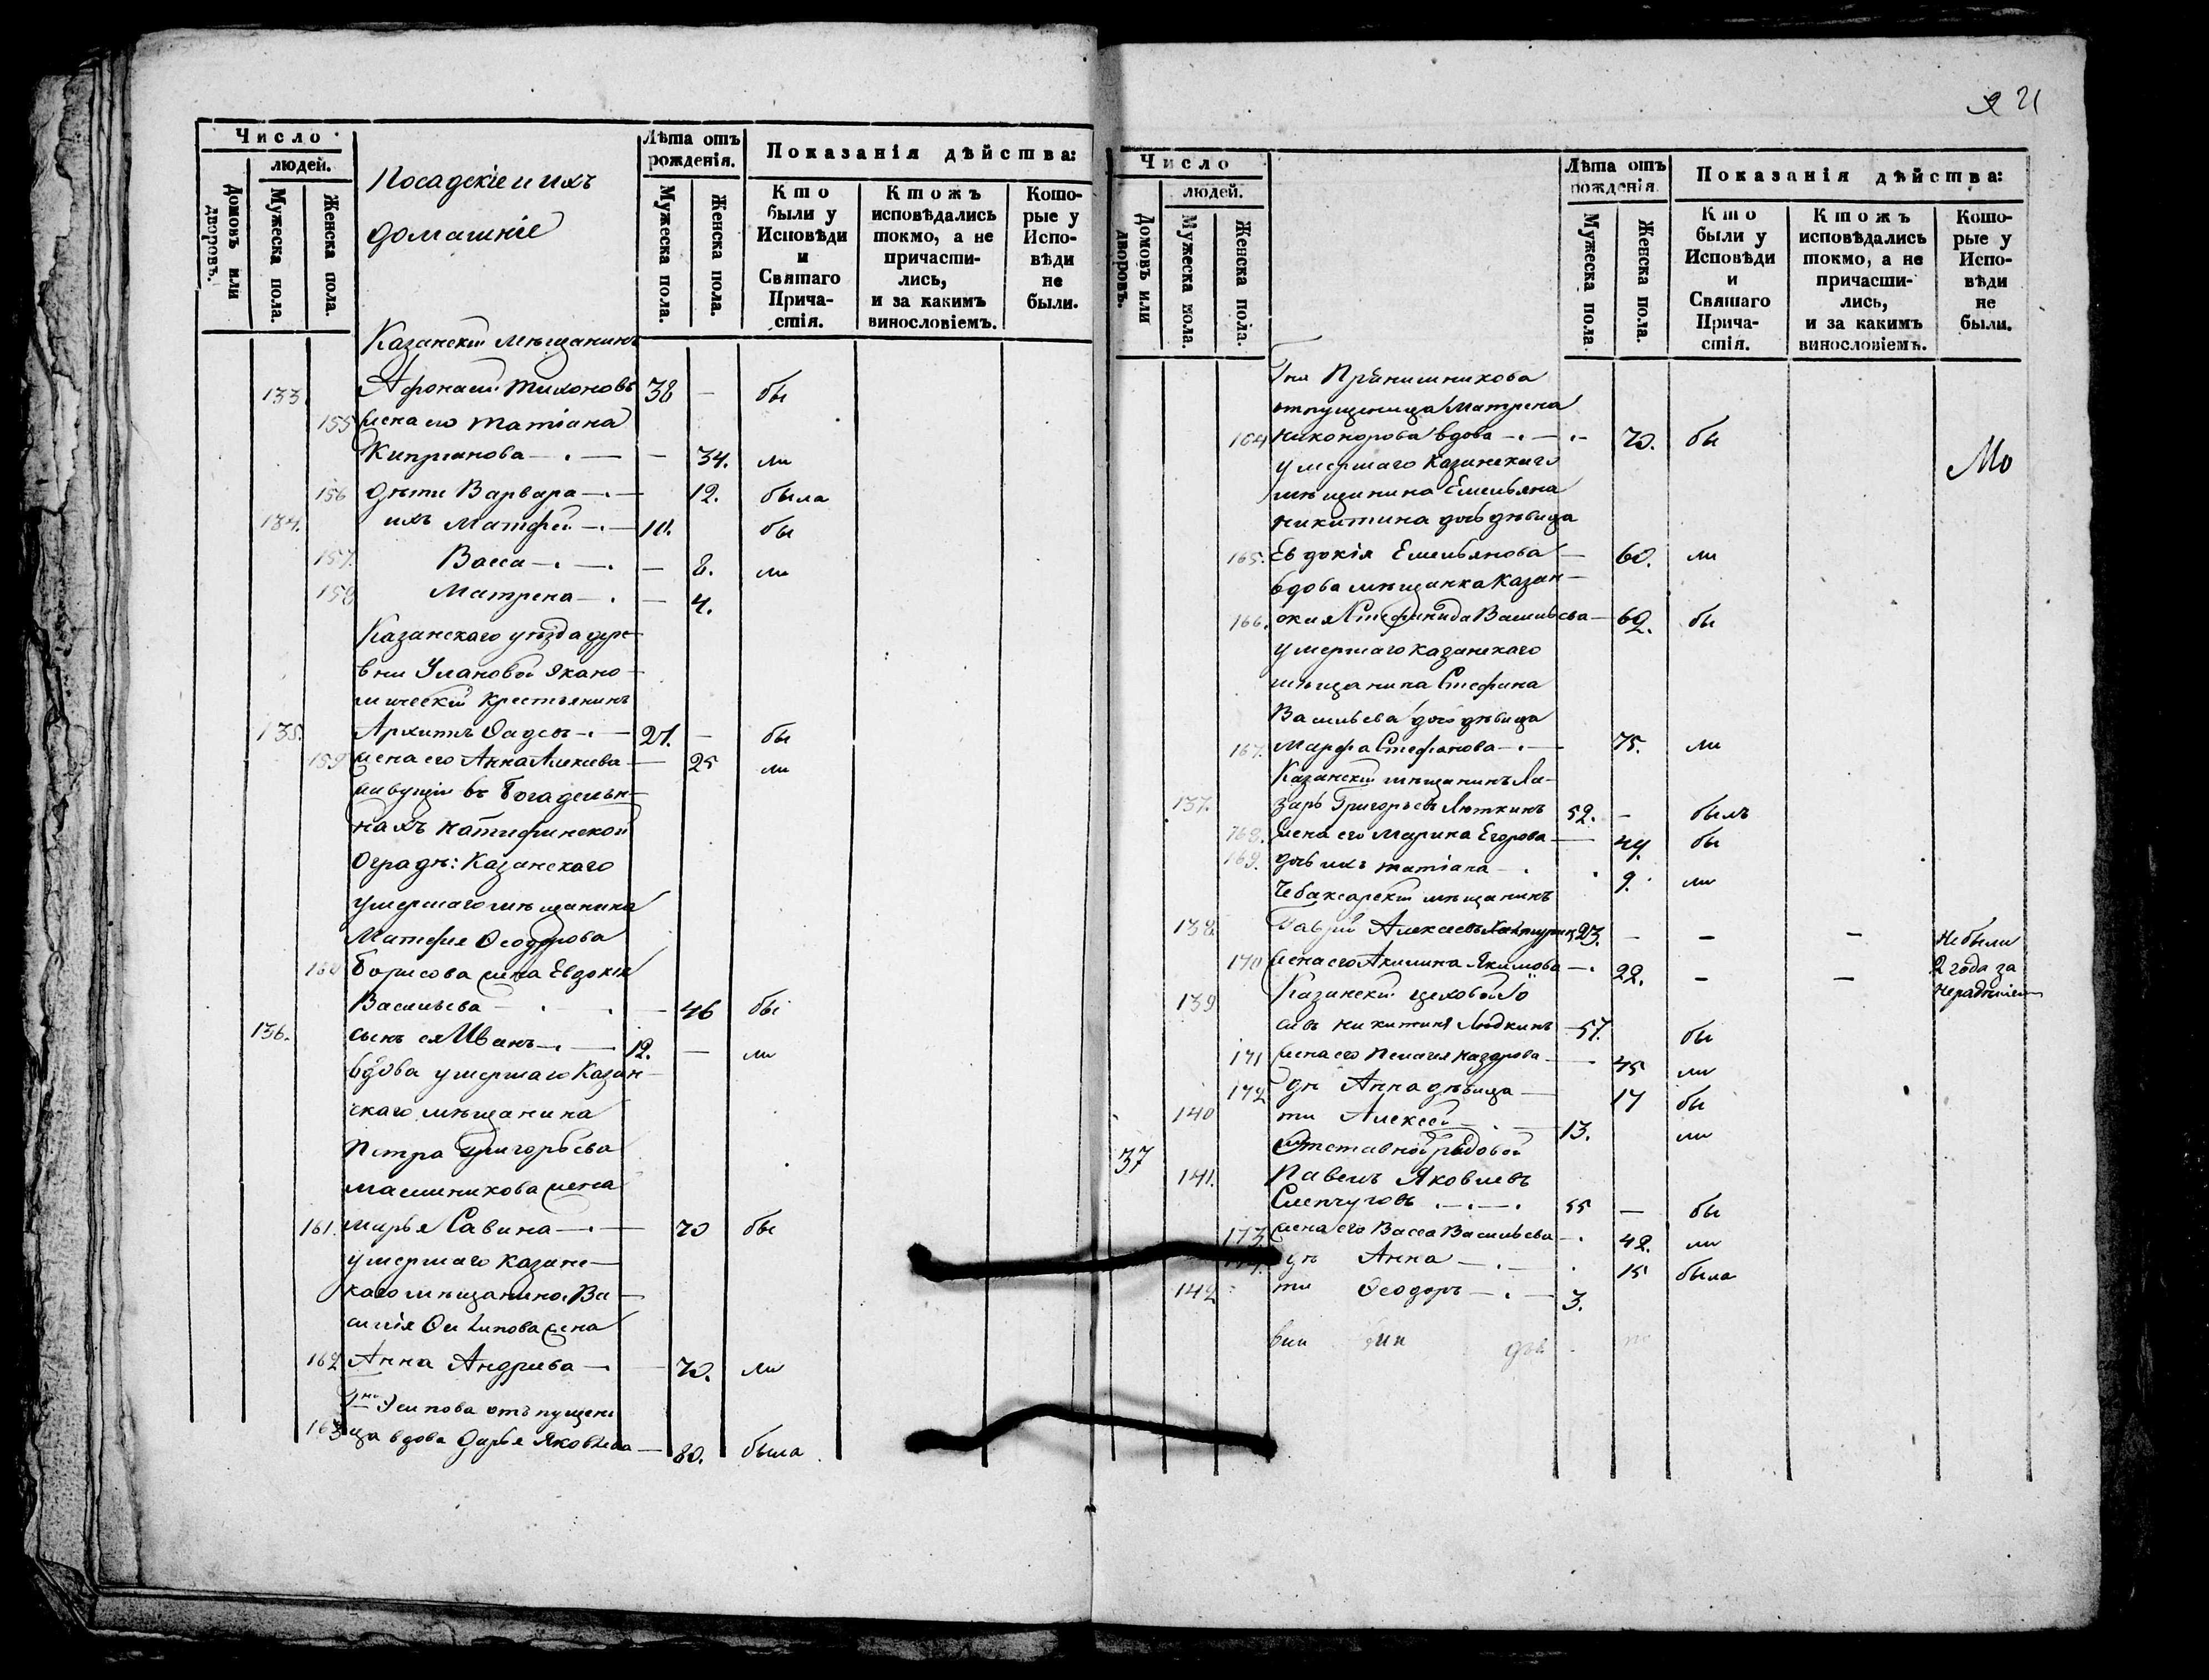 Число
людей.
Домовъ или дворовъ.
Мужеска пола.
Женска пола.
Посадскіе и ихъ
домашніе
Лѣта отъ рожденія.
Мужеска пола.
Женска пола.
Показанія дѣйства:
Кто были у Исповѣди и Святаго Причастія.
Ктожъ исповѣдались токмо, а не причастились, и за какимъ винословіемъ.
Которые у Исповѣди не были.
Казанскій мѣщанинъ
133. Афонасій Тихоновъ 38 — бы
155 жена его Татіана
Кипріанова — 34. ли
156 дѣти Варвара — 12. была
134. ихъ Матфей — 10. бы
157. Васса — 8. ли
158 Матрена — 4.
Казанскаго уѣзда дере-
вни Улановой Экано-
мическій крестьянинъ
135. Архипъ Фадеевъ — 21. — бы
159 жена его Анна Алексѣева — 25 ли
живущіе въ богадельн-
ахъ
Оградѣ: Казанскаго
умершаго мѣщанина
Матфея Ѳеодорова
160 Борисова жена Евдокія
Васильева — 46 бы
136. сынъ ея Иванъ — 12. — ли
вдова умершаго Казан-
скаго мѣщанина
Петра Григорьева
Масленикова жена
161. Марья Савина — 70 бы
умершаго Казанс-
каго мѣщанина Ва-
силія Осипова жена
162 Анна Андреева — 70. ли
Гна Осипова отпущени
163 ца вдова Дарья Яковлева — 80. была
21
Число
людей.
Домовъ или дворовъ.
Мужеска пола.
Женска пола.
Лѣта отъ рожденія.
Мужеска пола.
Женска пола.
Показанія дѣйства:
Кто были у Исповѣди и Святаго Причастія.
Ктожъ исповѣдались токмо, а не причастились, и за какимъ винословіемъ.
Которые у Исповѣди не были.
Гна Прянишникова
отпущеница Матрена
164 Никонорова вдова — 70. бы
умершаго Казанскаго
мѣщанина Емельяна
Никитина дочь дѣвица
165. Евдокія Емельянова — 60. ли
вдова мѣщанка Казан-
166. ская Стефанида Васильева — 62. бы
умершаго Казанскаго
мѣщанина Стефана
Васильева дочь дѣвица
167. Марфа Стефанова — 75. ли
Казанскій мѣщанинъ Ла-
137. зарь Григорьевъ Люткинъ 52. — былъ
168. жена его Марина Егорова — 49. бы
169. дочь ихъ Татіана — 9. ли
Чебаксарскій мѣщанинъ
138. Гаврій Алексеевъ 23. — — — Не были
170 жена его Акилина Якимова — 22. — — 2 года за
нерадѣніем
139 Казанскій цеховой Іо
сифъ Никитинъ Людкинъ — 57. бы
171 жена его Пелагея Назарова — 45 ли
172 дѣ Анна дѣвица — 17 бы
140 ти Алексѣй — 13. ли
37 Отставной рядовой
141. Павелъ Яковлевъ
Слепчуговъ 55 — бы
173 жена его Васса Васильева — 42. ли
174. дѣ Анна — 15 была
142 ти Ѳеодоръ — 3.